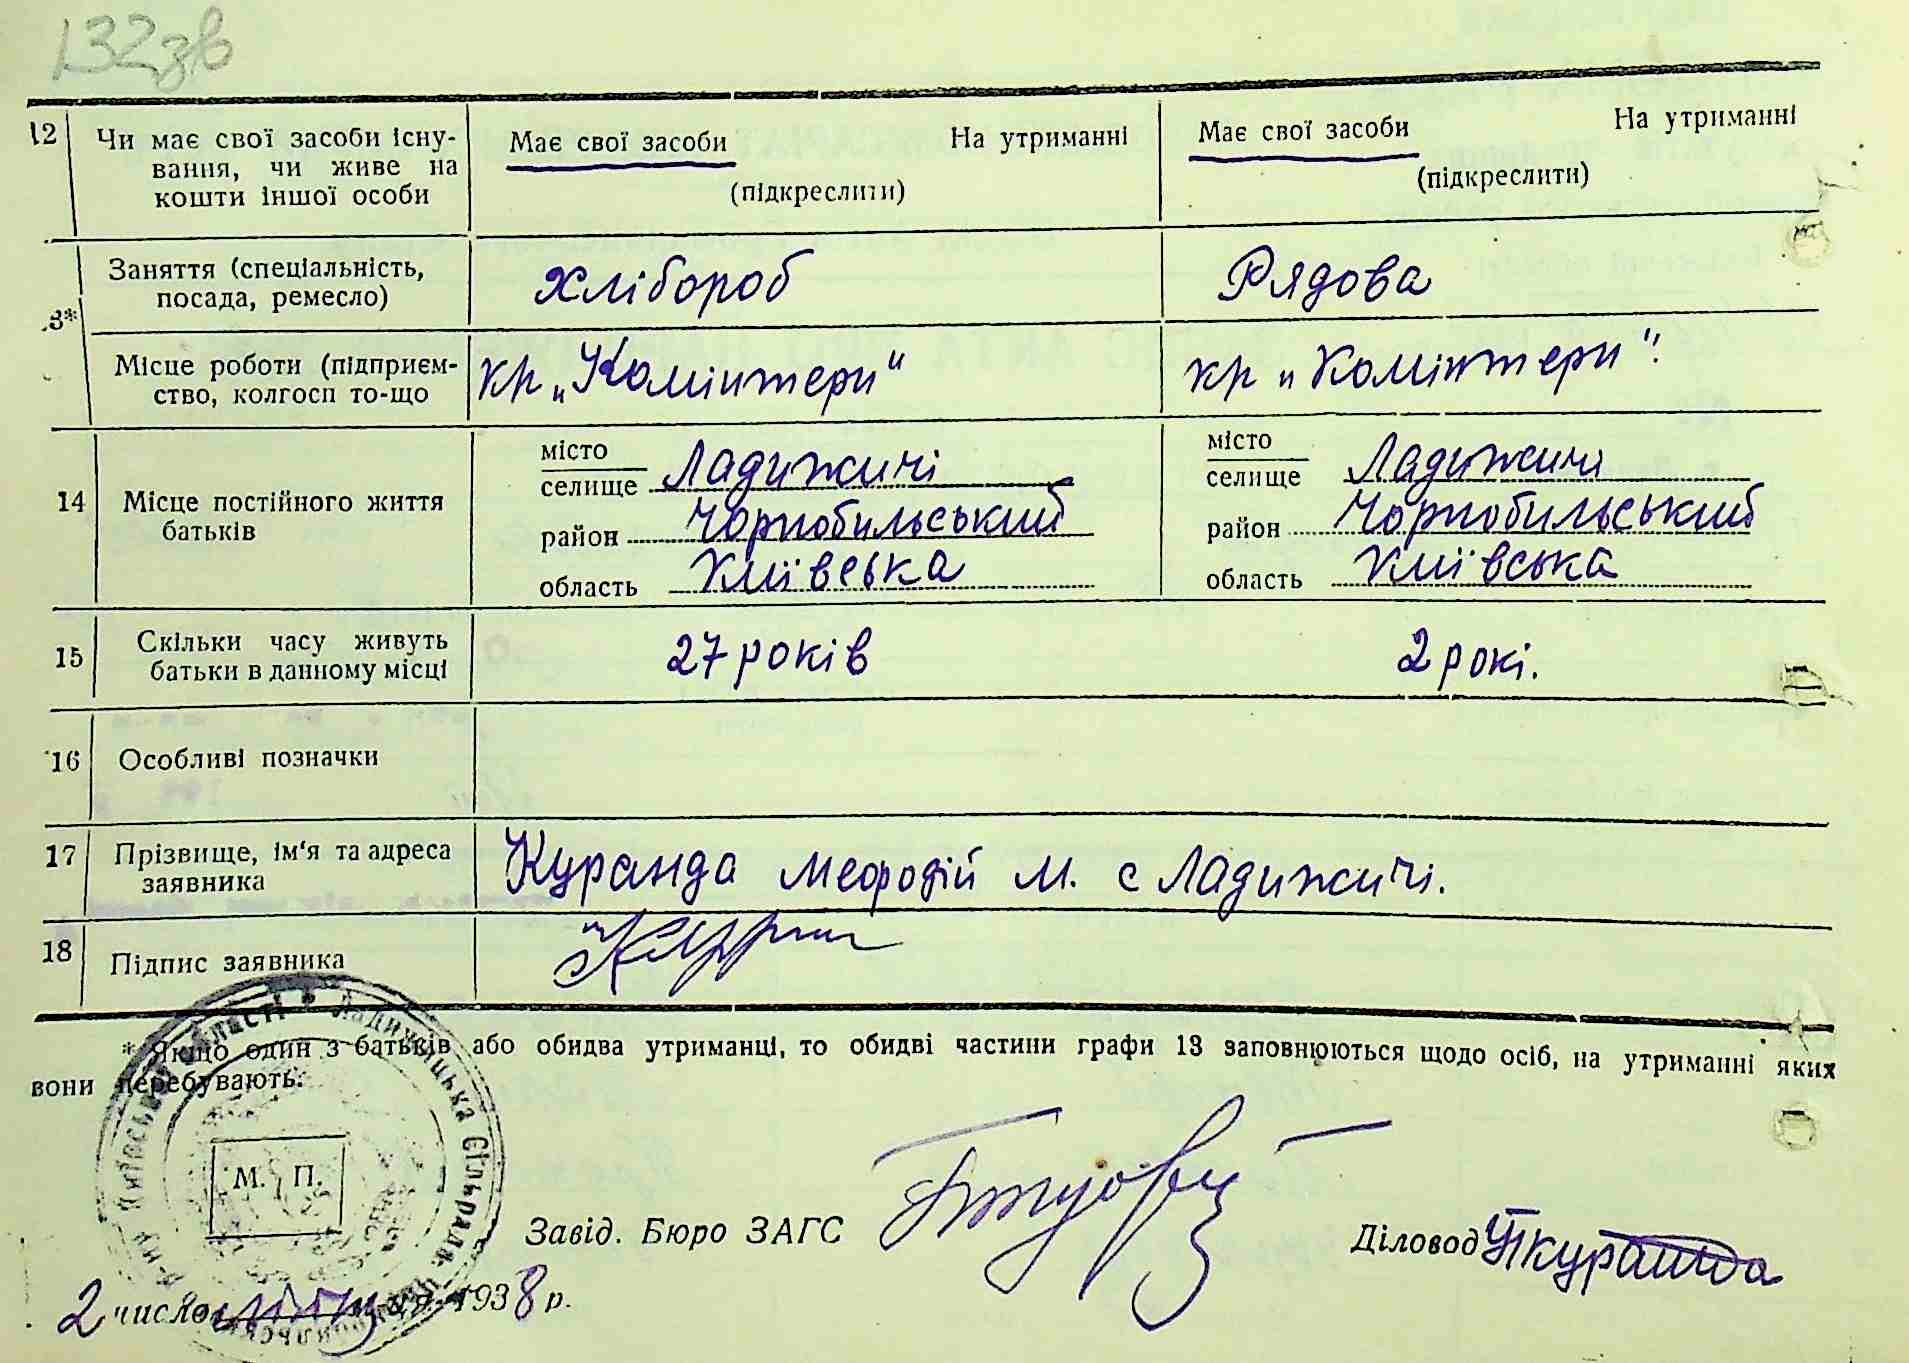 132зв
12 Чи має свої засоби існу-
вання, чи живе на
кошти іншої особи
Має свої засоби На утриманні
(підкреслити)
Має свої засоби На утриманні
(підкреслити)
13*
Заняття (спеціальність,
посада, ремесло)
Хлібороб
Рядова
Місце роботи (підприєм-
ство, колгосп то-що
кр „Комінтерн"
кр „Комінтерн".
14 Місце постійного життя
батьків
місто
селище Ладижичі
район Чорнобильський
область Київська
місто
селище Ладижичі
район Чорнобильський
область Київська
15 Скільки часу живуть
батьки в данному місці
27 років
2 рокі.
16 Особливі позначки
17 Прізвище, ім'я та адреса
заявника
Куранда Мефодій М. с Ладижичі.
18 Підпис заявника
* Якщо один з батьків або обидва утриманці, то обидві частини графи 13 заповнюються щодо осіб, на утриманні яких
вони перебувають.
Київської області * Ладижицька Сільрада
М. П.
Завід. Бюро ЗАГС
Діловод
2 число 1938 р.